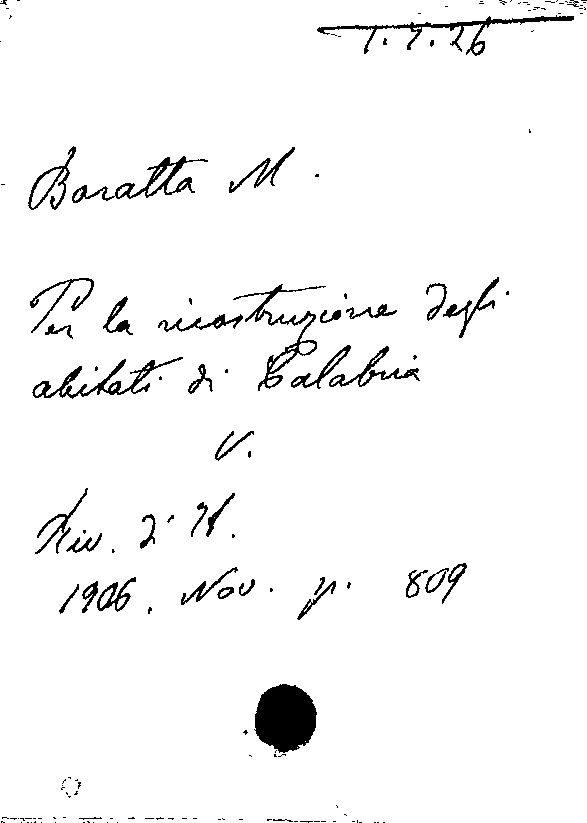 1.7.26
Baratta M.
Per la ricostruzione degli
abitati di Calabria
V.
Riv. d' It.
1906. Nov. p. 809